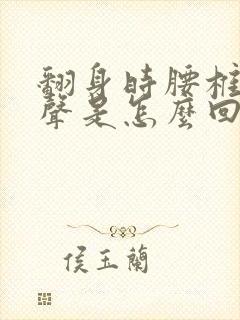 翻身時腰椎
聲是怎麼回
侯玉蘭